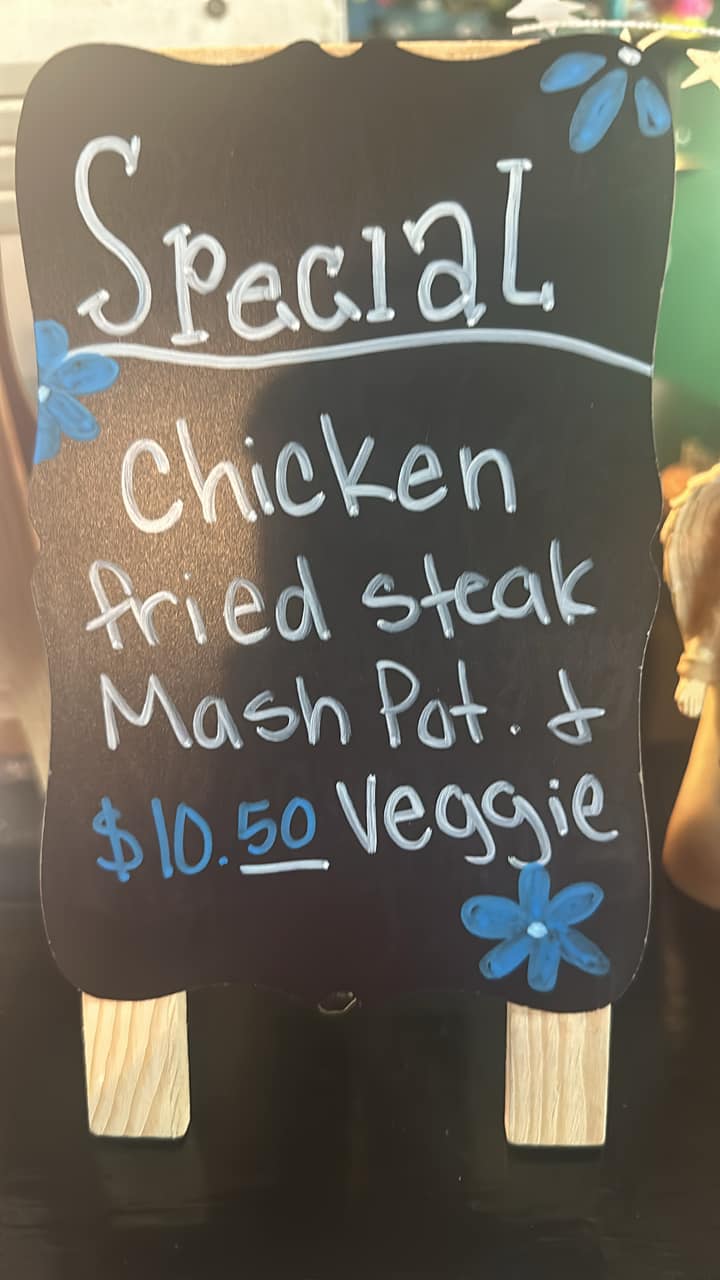 Special
Chicken
fried steak
Mash Pot. &
$10.50 Veggie